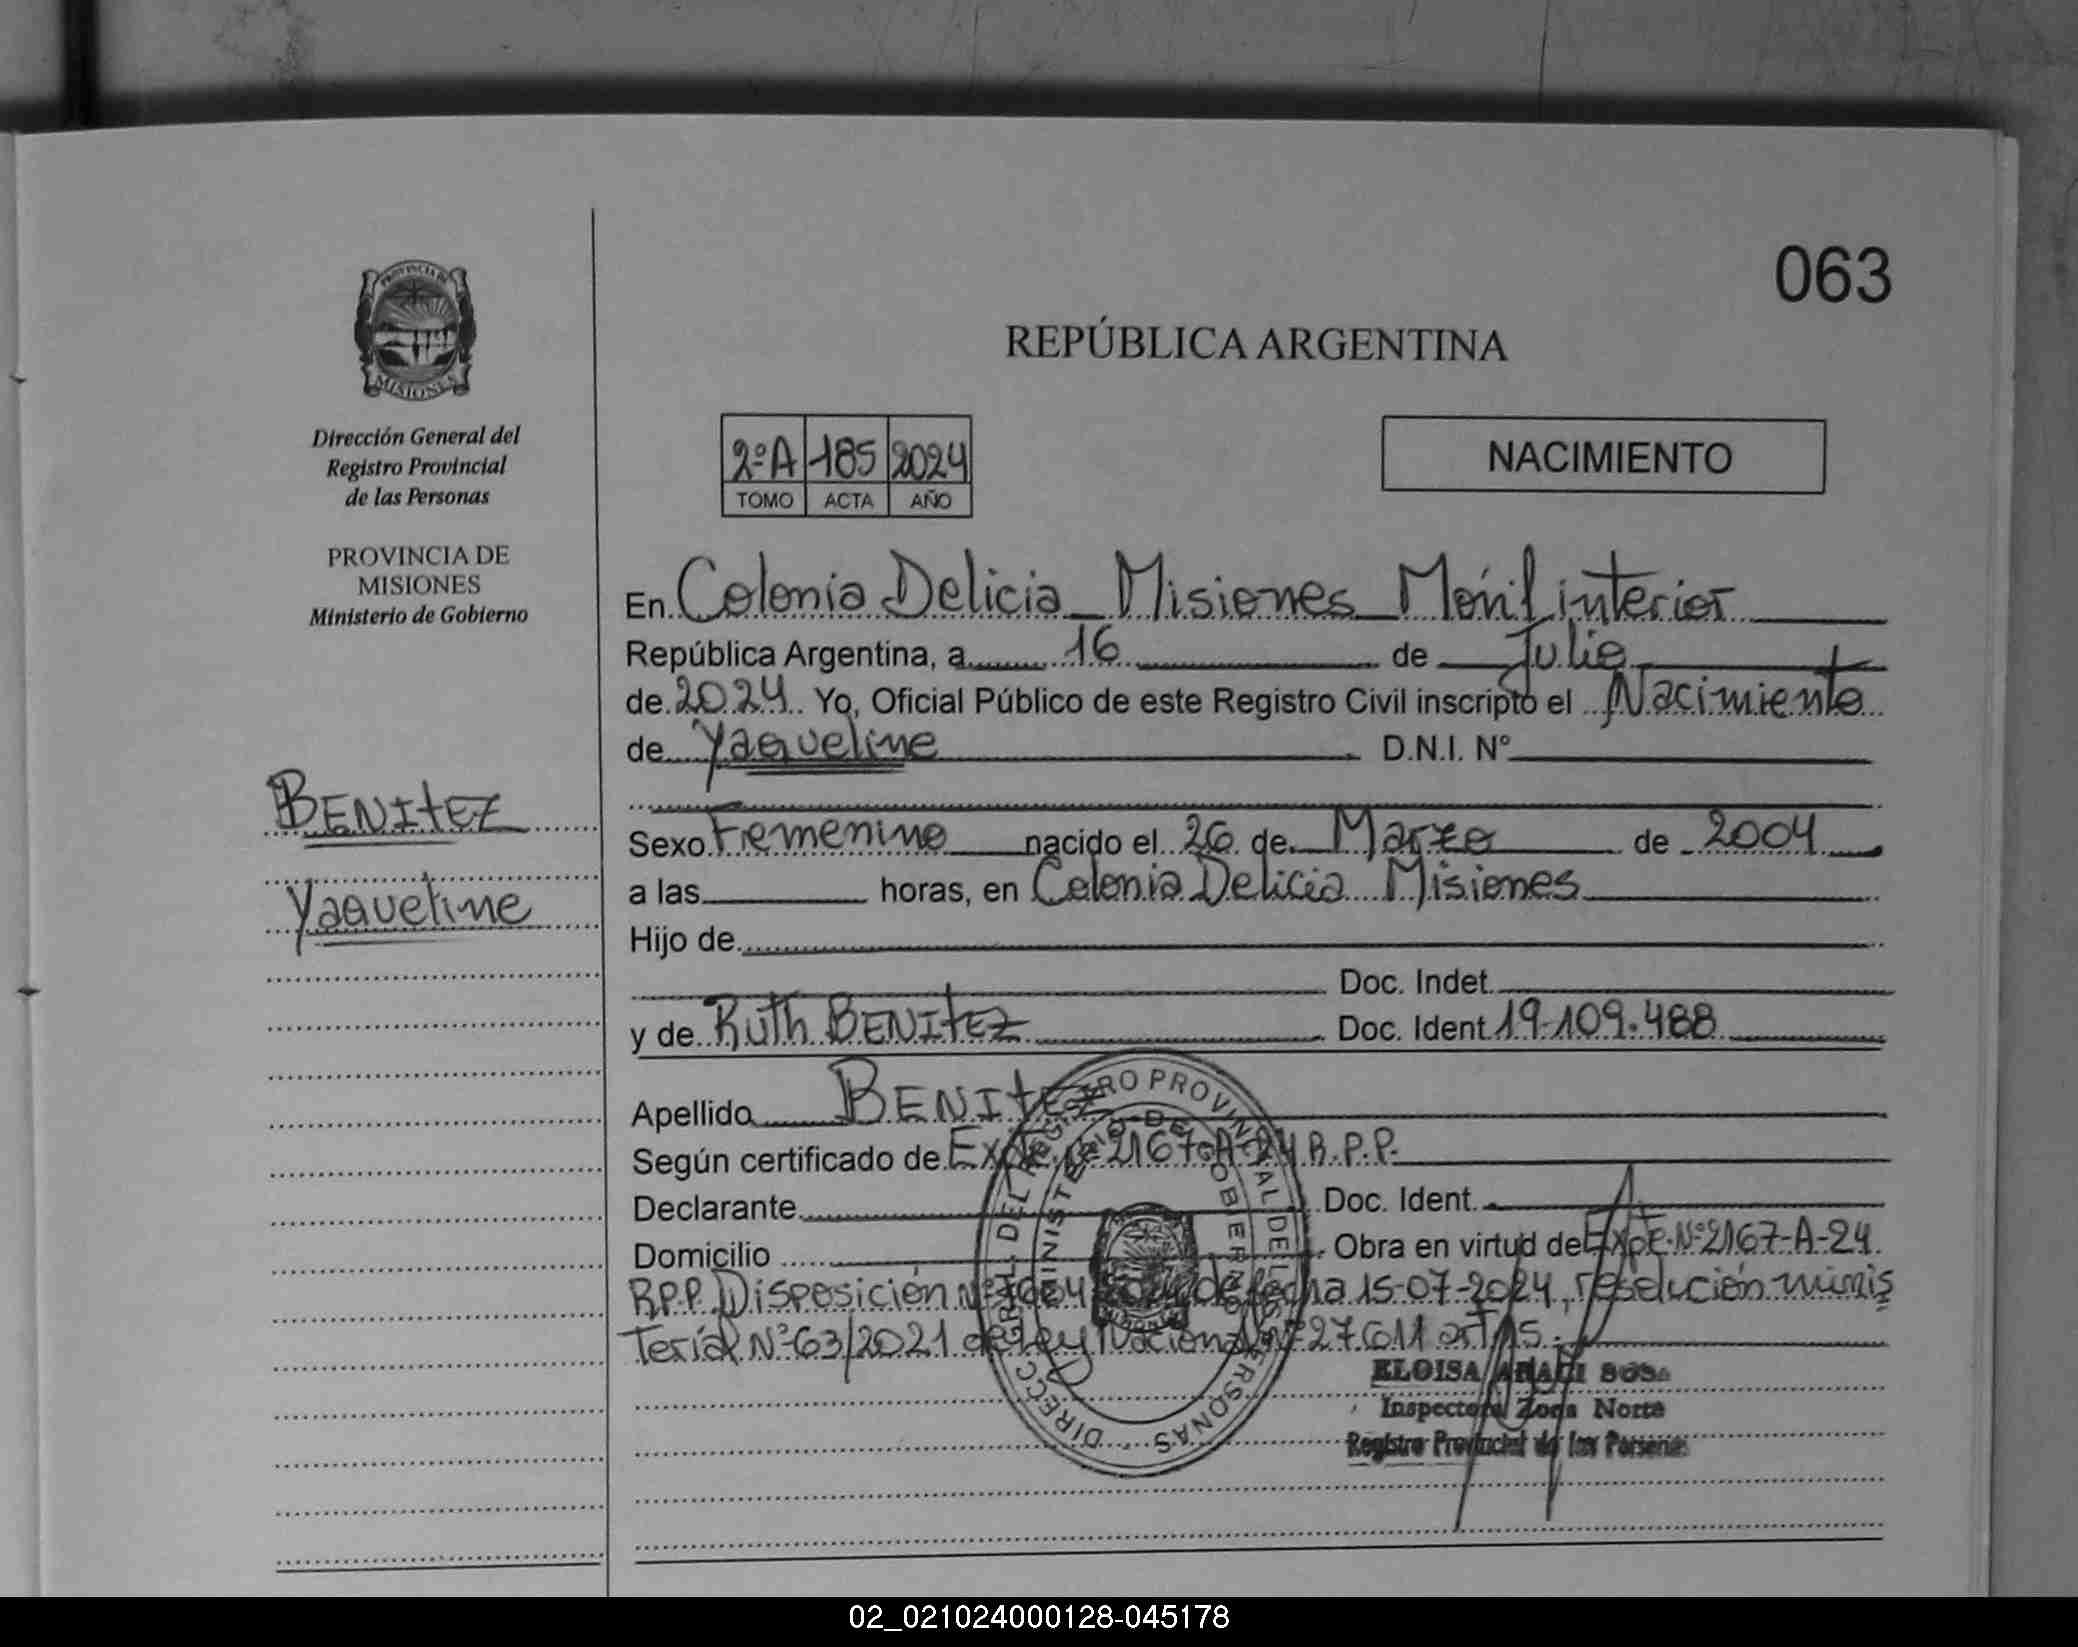 063
PROVINCIA DE
MISIONES
Dirección General del
Registro Provincial
de las Personas
PROVINCIA DE
MISIONES
Ministerio de Gobierno
BENITEZ
Yaqueline
REPÚBLICA ARGENTINA
2ºA 185 2024
TOMO ACTA AÑO
NACIMIENTO
En Colonia Delicia Misiones Móvil interior
República Argentina, a 16 de Julio
de 2024 Yo, Oficial Público de este Registro Civil inscripto el Nacimiento
de Yaqueline D.N.I. Nº
Sexo Femenino nacido el 26 de Marzo de 2004
a las horas, en Colonia Delicia Misiones
Hijo de
Doc. Indet.
y de Ruth BENITEZ Doc. Ident 19.109.488
Apellido BENITEZ
Según certificado de Expte 2167-A-24 R.P.P.
Declarante Doc. Ident.
Domicilio Obra en virtud de Expte Nº2167-A-24
R.P.P. Disposición de fecha 15-07-2024, resolución minis
terial Nº63/2021 de Ley Nacional Nº27611
DIRECC GRAL DEL REGISTRO PROVINCIAL DE PERSONAS
MINISTERIO DE GOBIERNO
ELOISA SOSA
Inspectora Zona Norte
Registro Provincial de las Personas
02_021024000128-045178